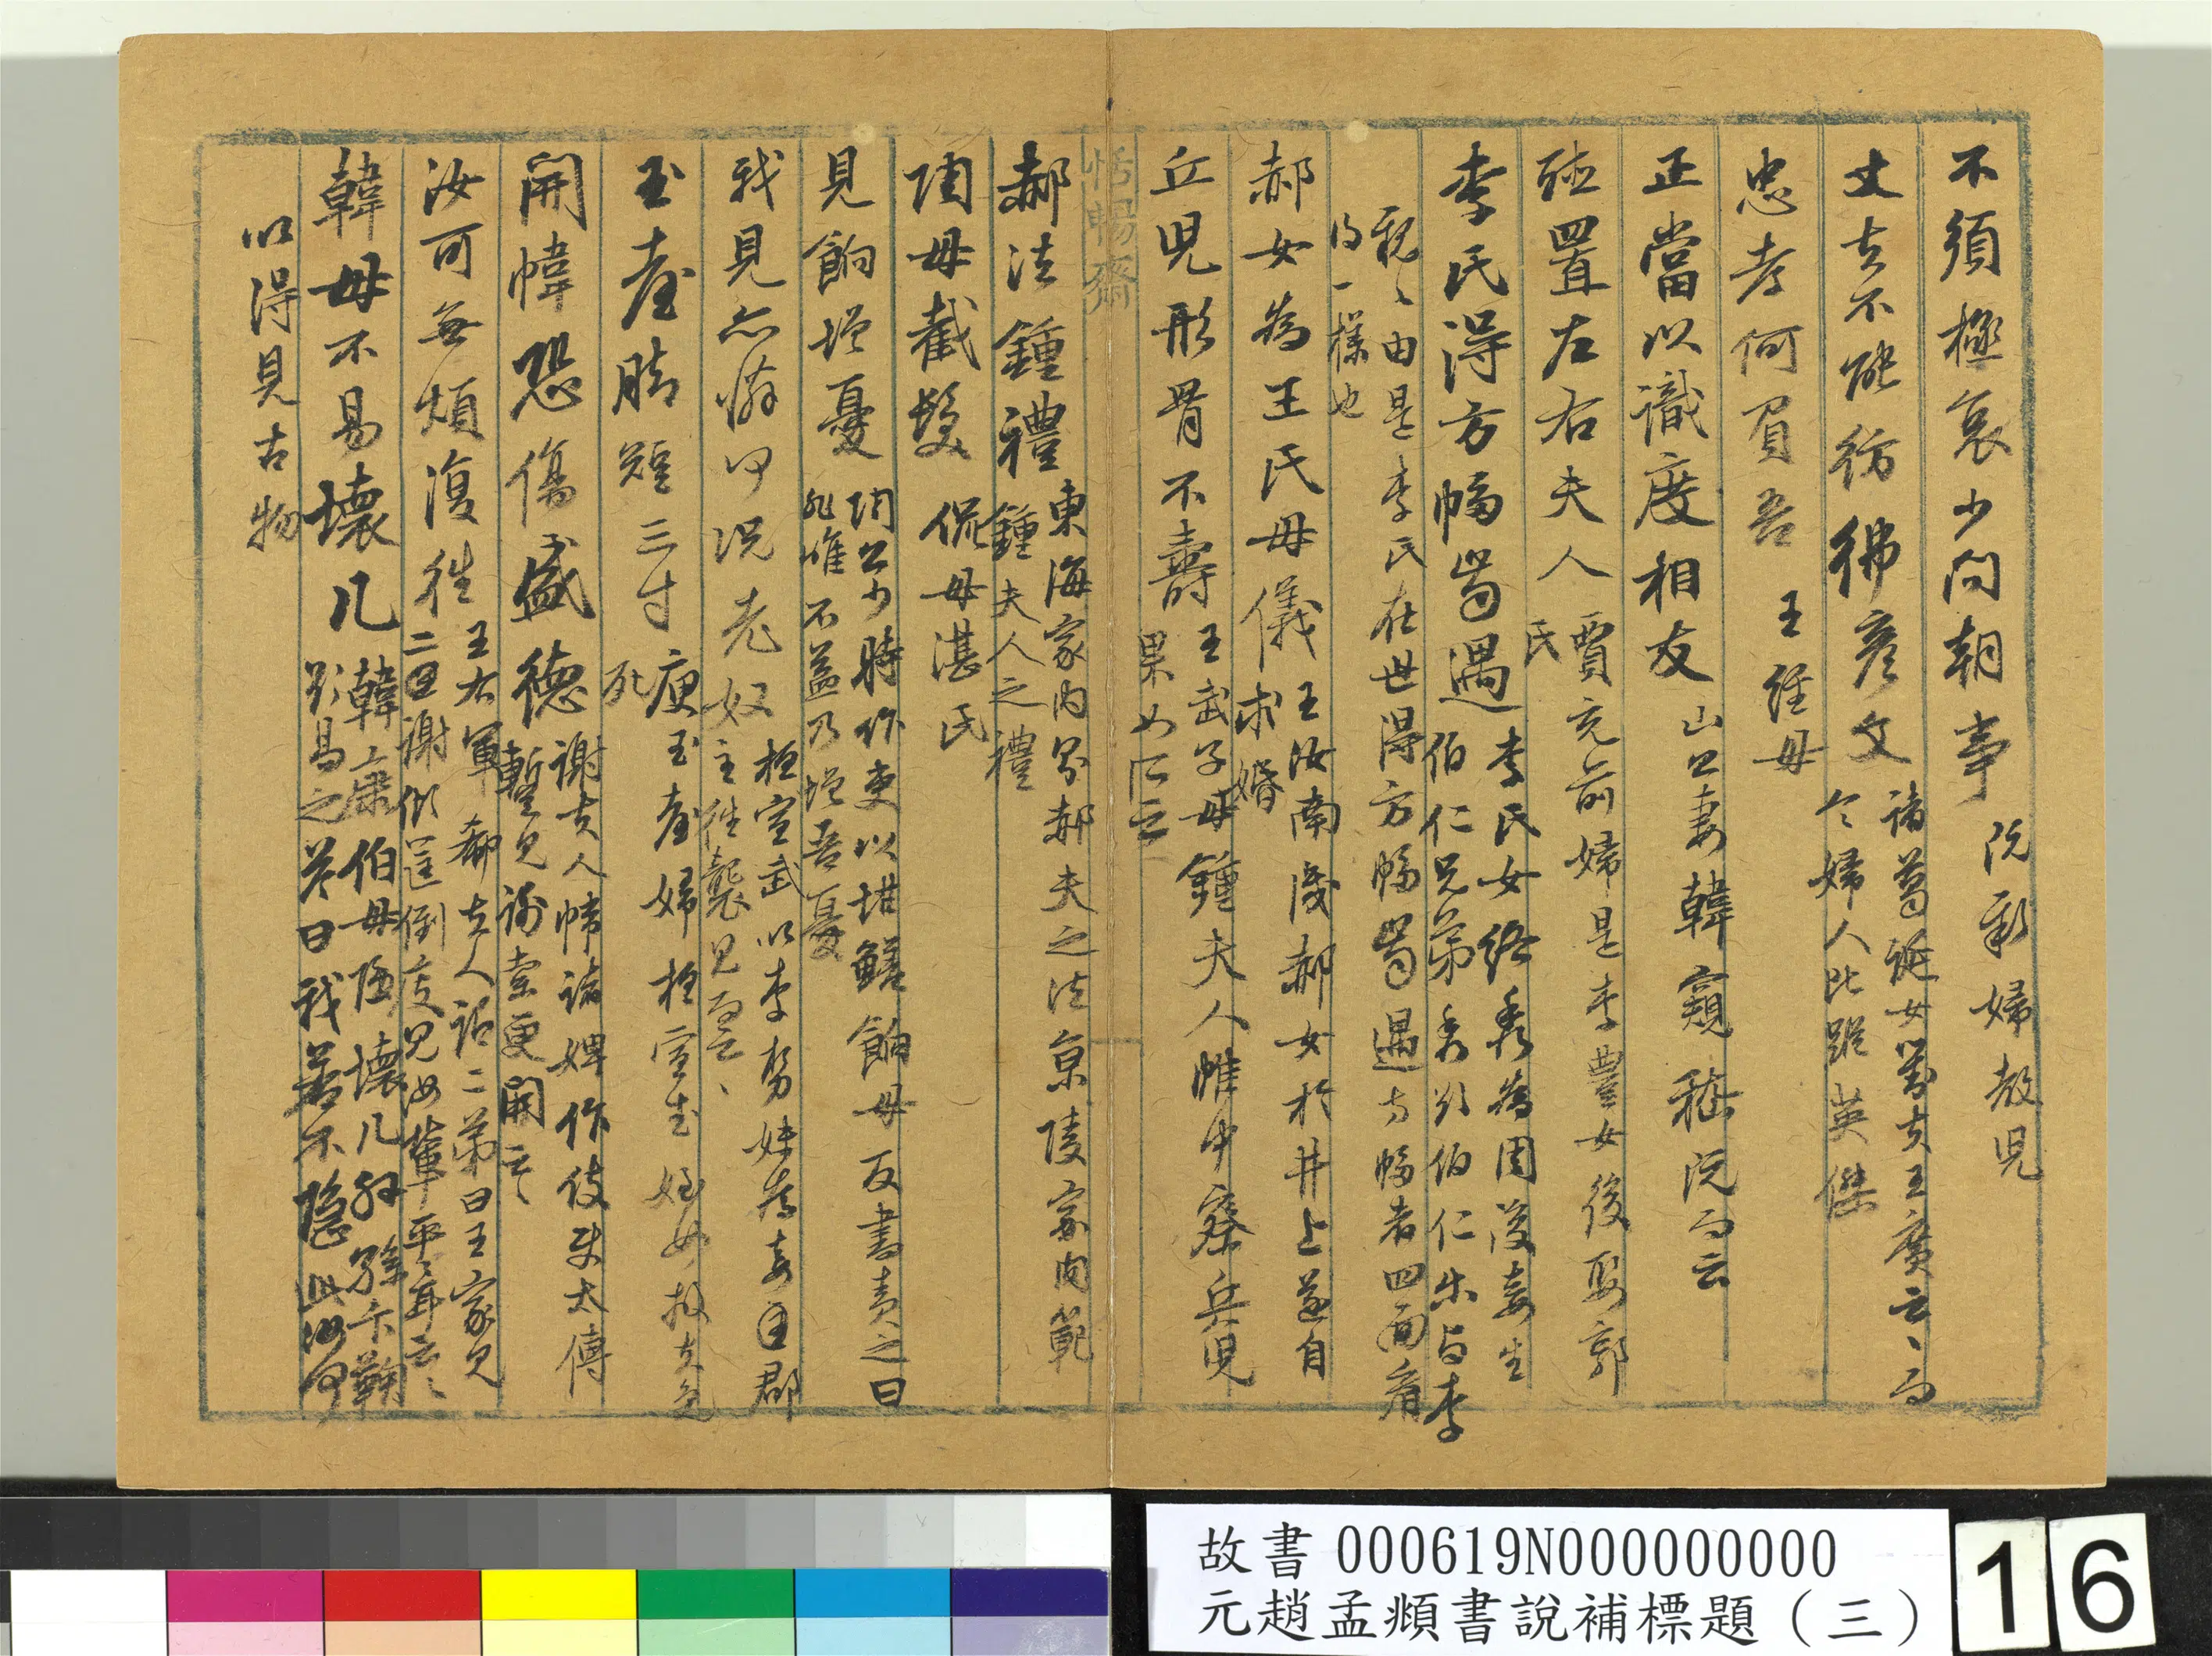 不須極哀少問朝事
阮新婦教兒
丈夫不能彷彿彥文
諸葛誕女對夫王廣云、而
令婦人比蹤英傑
忠孝何負吾
王經母
正當以識度相友
山公妻韓窺嵇阮而云
顿置左右夫人
賈充前婦是李豐女後娶郭
氏
李氏得方幅當遇
李氏女絡秀為周浚妾生
伯仁兄弟秀對伯仁
由是李氏在世得方幅當遇方幅者四面看
一樣也
郝女為王氏母儀
王汝南浚郝女於井上遂自
求婚
兵兒形骨不壽
王武子母鍾夫人帷中察兵兒
果如所云
恬暢齋
郝法鍾禮
東海家內則郝夫人之法京陵家內範
鍾夫人之禮
陶母截髮
侃母湛氏
見餉增憂
陶公少時作吏以坩鱔餉母反書責之曰
非唯不益乃增吾憂
我見亦憐何況老奴
桓宣武以李勢妹為妾主郡
主往襲見而云、
玉臺腳短三寸
庾玉臺婦桓宣武姪女
開幃恐傷盛德
謝夫人幃諸婢作伎使太傅
暫見謝索更開云
汝可無煩復往
王右軍郗夫人語二弟曰王家見
二謝傾筐倒庋見汝輩平平耳云、
韓母不易壞几
韓康伯母隱壞几外孫卞鞠
欲易之答曰我若不隱此汝何
以得見古物
故書 000619N000000000
元趙孟頫書說補標題（三）
16